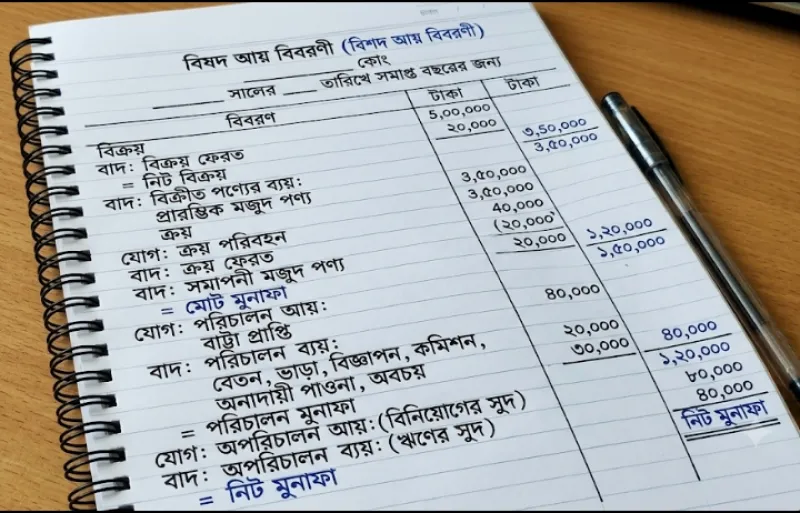 বিষদ আয় বিবরণী (বিশদ আয় বিবরণী)
________ কোং
______ সালের ____ তারিখে সমাপ্ত বছরের জন্য
বিবরণ টাকা টাকা
বিক্রয় 5,00,000
বাদ: বিক্রয় ফেরত ২০,০০০ ৩,50,০০০
= নিট বিক্রয় 3,৫০,০০০
বাদ: বিক্রীত পণ্যের ব্যয়:
প্রারম্ভিক মজুদ পণ্য 3,৫০,০০০
ক্রয় 3,৫০,০০০
যোগ: ক্রয় পরিবহন 40,০০০
বাদ: ক্রয় ফেরত (২০,০০০
বাদ: সমাপনী মজুদ পণ্য ২০,০০০ ১,২০,০০০
= মোট মুনাফা ১,৫০,০০০
যোগ: পরিচালন আয়:
বাট্টা প্রাপ্তি ৪০,০০০
বাদ: পরিচালন ব্যয়:
বেতন, ভাড়া, বিজ্ঞাপন, কমিশন, ২০,০০০
অনাদায়ী পাওনা, অবচয় ৩০,০০০ ৪০,০০০
= পরিচালন মুনাফা ১,২০,০০০
যোগ: অপরিচালন আয়: (বিনিয়োগের সুদ) ৮০,০০০
বাদ: অপরিচালন ব্যয়: (ঋণের সুদ) ৪০,০০০
= নিট মুনাফা নিট মুনাফা